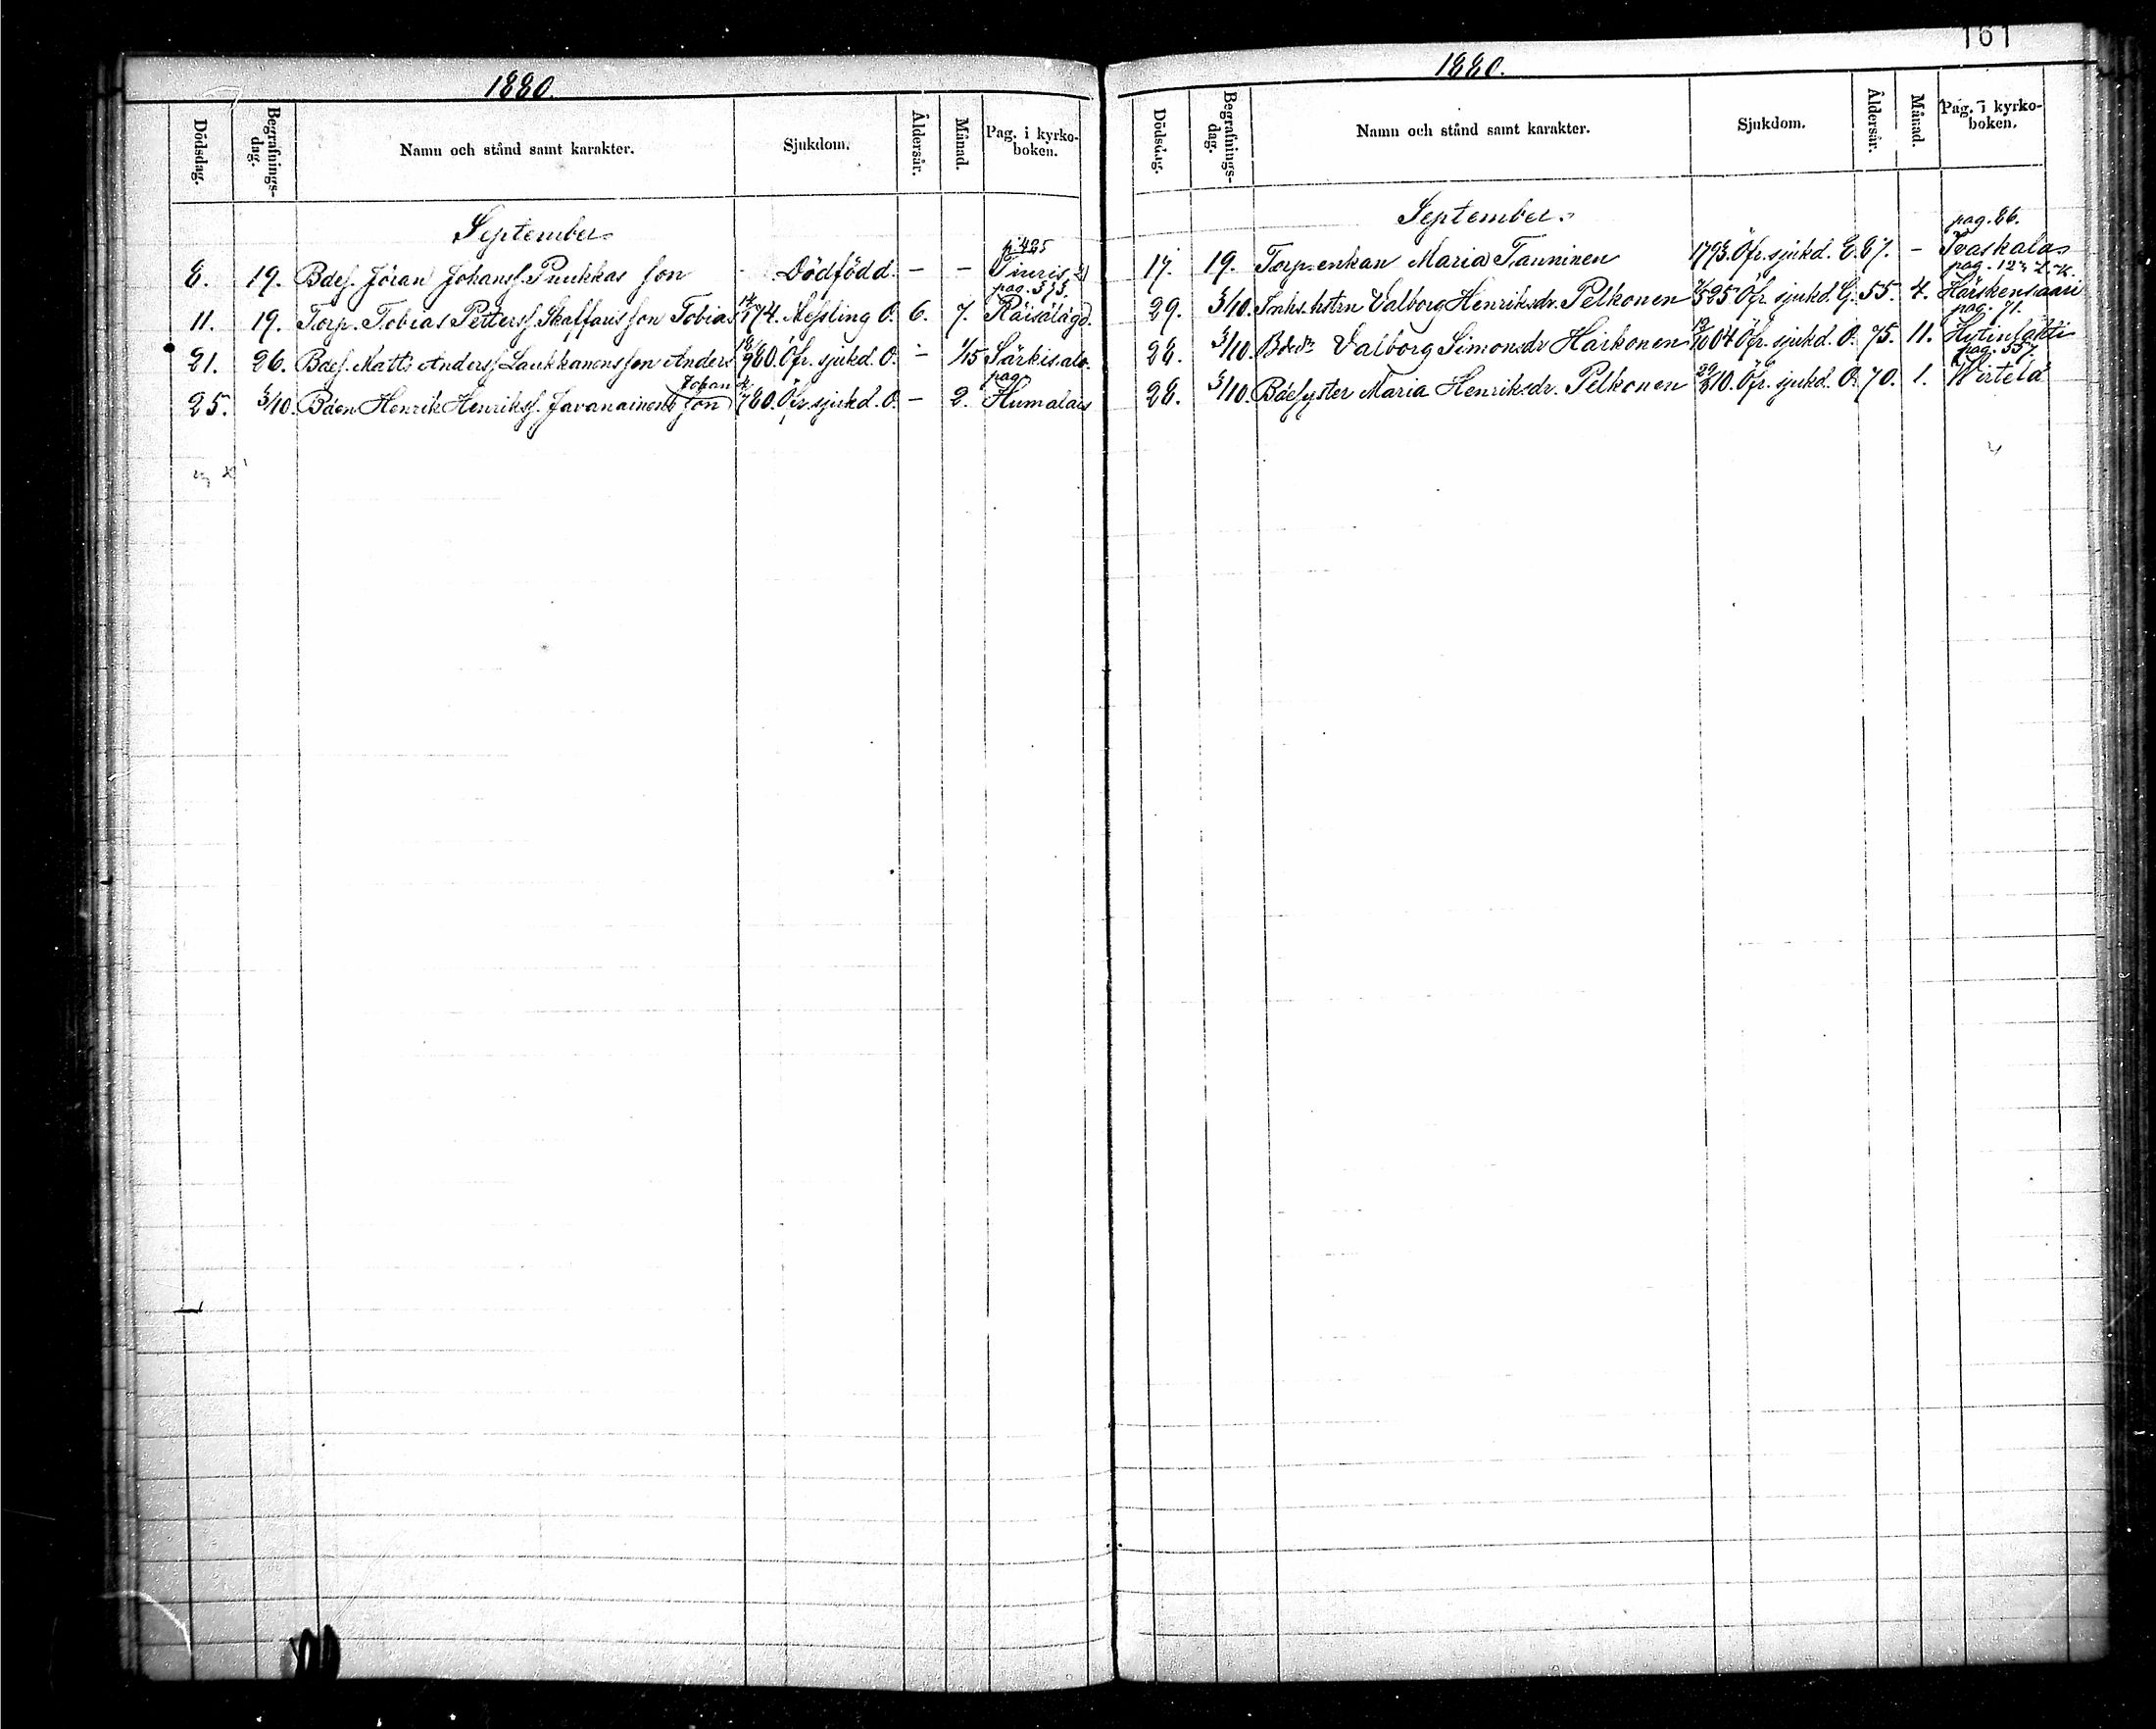 1880.
Dödsdag. Begrafningsdag. Namn och stånd samt karakter. Sjukdom. Åldersår. Månad. Pag. i kyrkoboken.
September
p. 425
8. 19. Bdes. Jöran Johanss. Puukkas son - Dödfödd. - - Tiuris
pag. 353.
11. 19. Torp. Tobias Petterss. Skaffaris son Tobias 74. Messling O. 6. 7. Räisälägd.
21. 26. Bdes. Matts Anderss. Laukkanens son Anders 18/9 80. Öfr. sjukd. O. - 1/15 Särkisalo.
Johan pag.
25. 3/10. Bden Henrik Henrikss. Javanainens son /7 80. Öfr. sjukd. O. - 2. Humalais
161
1880.
Dödsdag. Begrafningsdag. Namn och stånd samt karakter. Sjukdom. Åldersår. Månad. Pag. i kyrkoboken.
September.
pag. 86.
17. 19. Torp.enkan Maria Tanninen 1793. Öfr. sjukd. E. 87. - Ivaskala
29. 3/10. Inhs. hstrn Valborg Henriksdr. Pelkonen 25 Öfr. sjukd. G. 55. 4. Härskensaari
pag. 71.
28. 3/10. Valborg Simonsdr Härkönen /10 04 Öfr. sjukd. O. 75. 11. Hytinlahti
pag. 357.
28. 3/10. Bdesyster Maria Henriksdr. Pelkonen 29/8 10. Öfr. sjukd. O. 70. 1. Wirtelä